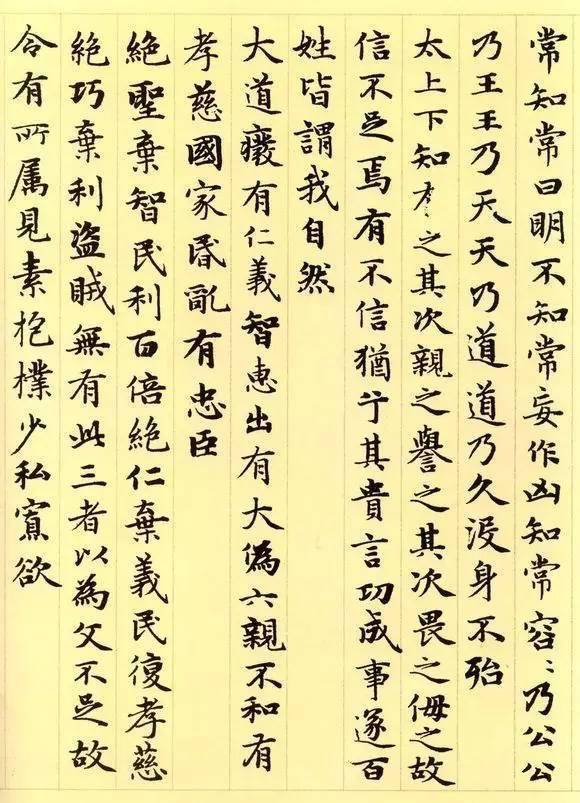 常知常曰明不知常妄作凶知常容〻乃公公
乃王王乃天天乃道道乃久没身不殆
太上下知有之其次親之譽之其次畏之侮之故
信不足焉有不信猶乎其貴言功成事遂百
姓皆謂我自然
大道癈有仁義智惠出有大偽六親不和有
孝慈國家昏亂有忠臣
絕聖棄智民利百倍絕仁棄義民復孝慈
絕巧棄利盜賊無有此三者以為文不足故
令有所屬見素抱樸少私寡欲